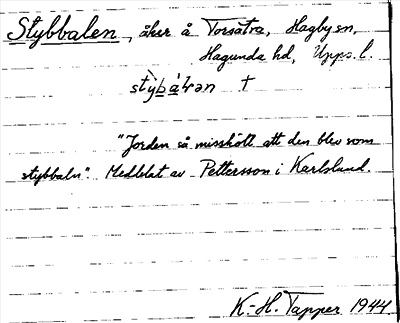 Stybbalen, åker å Torsätra, Hagby sn,
Hagunda hd, Upps. l.
"Jorden så misskött att den blev som
stybbaln". Meddelat av Pettersson i Karlslund.
K.-H. Tapper 1944